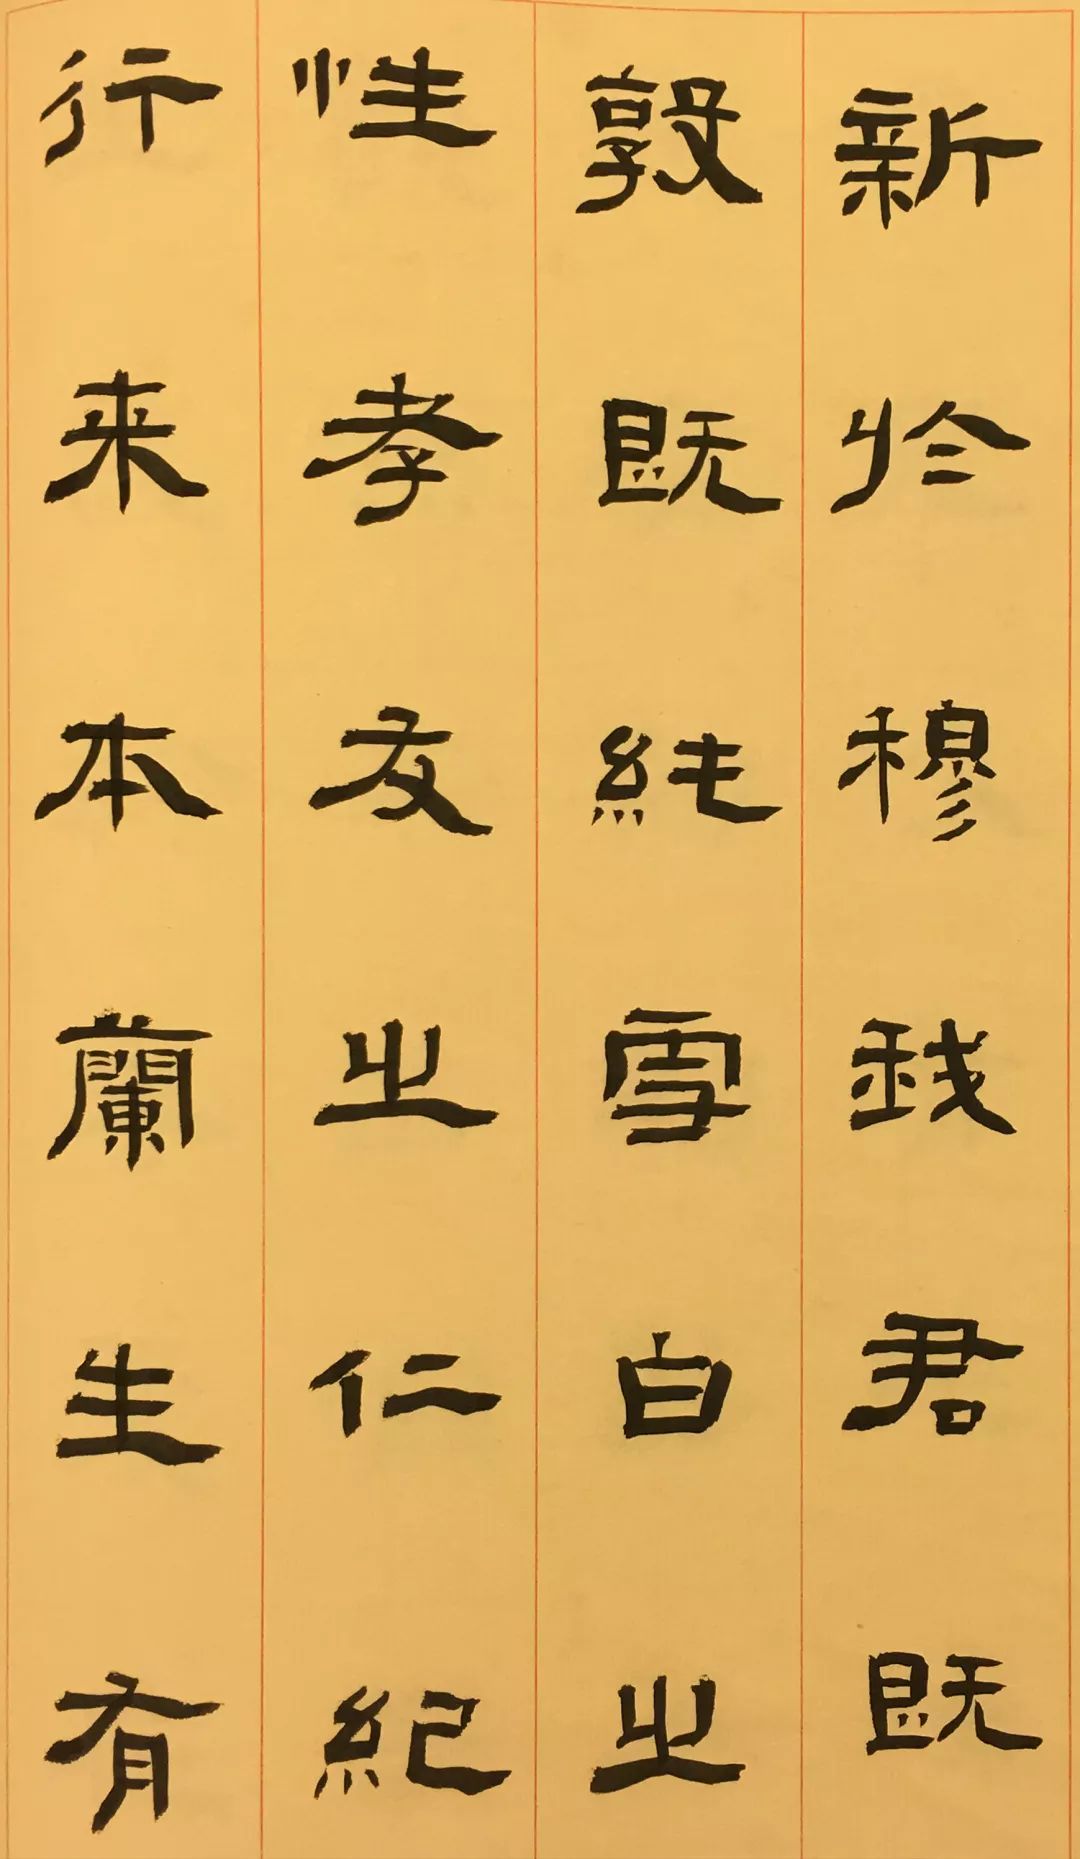 新於穆我君既
敦既純雪白之
性孝友之仁紀
行来本蘭生有